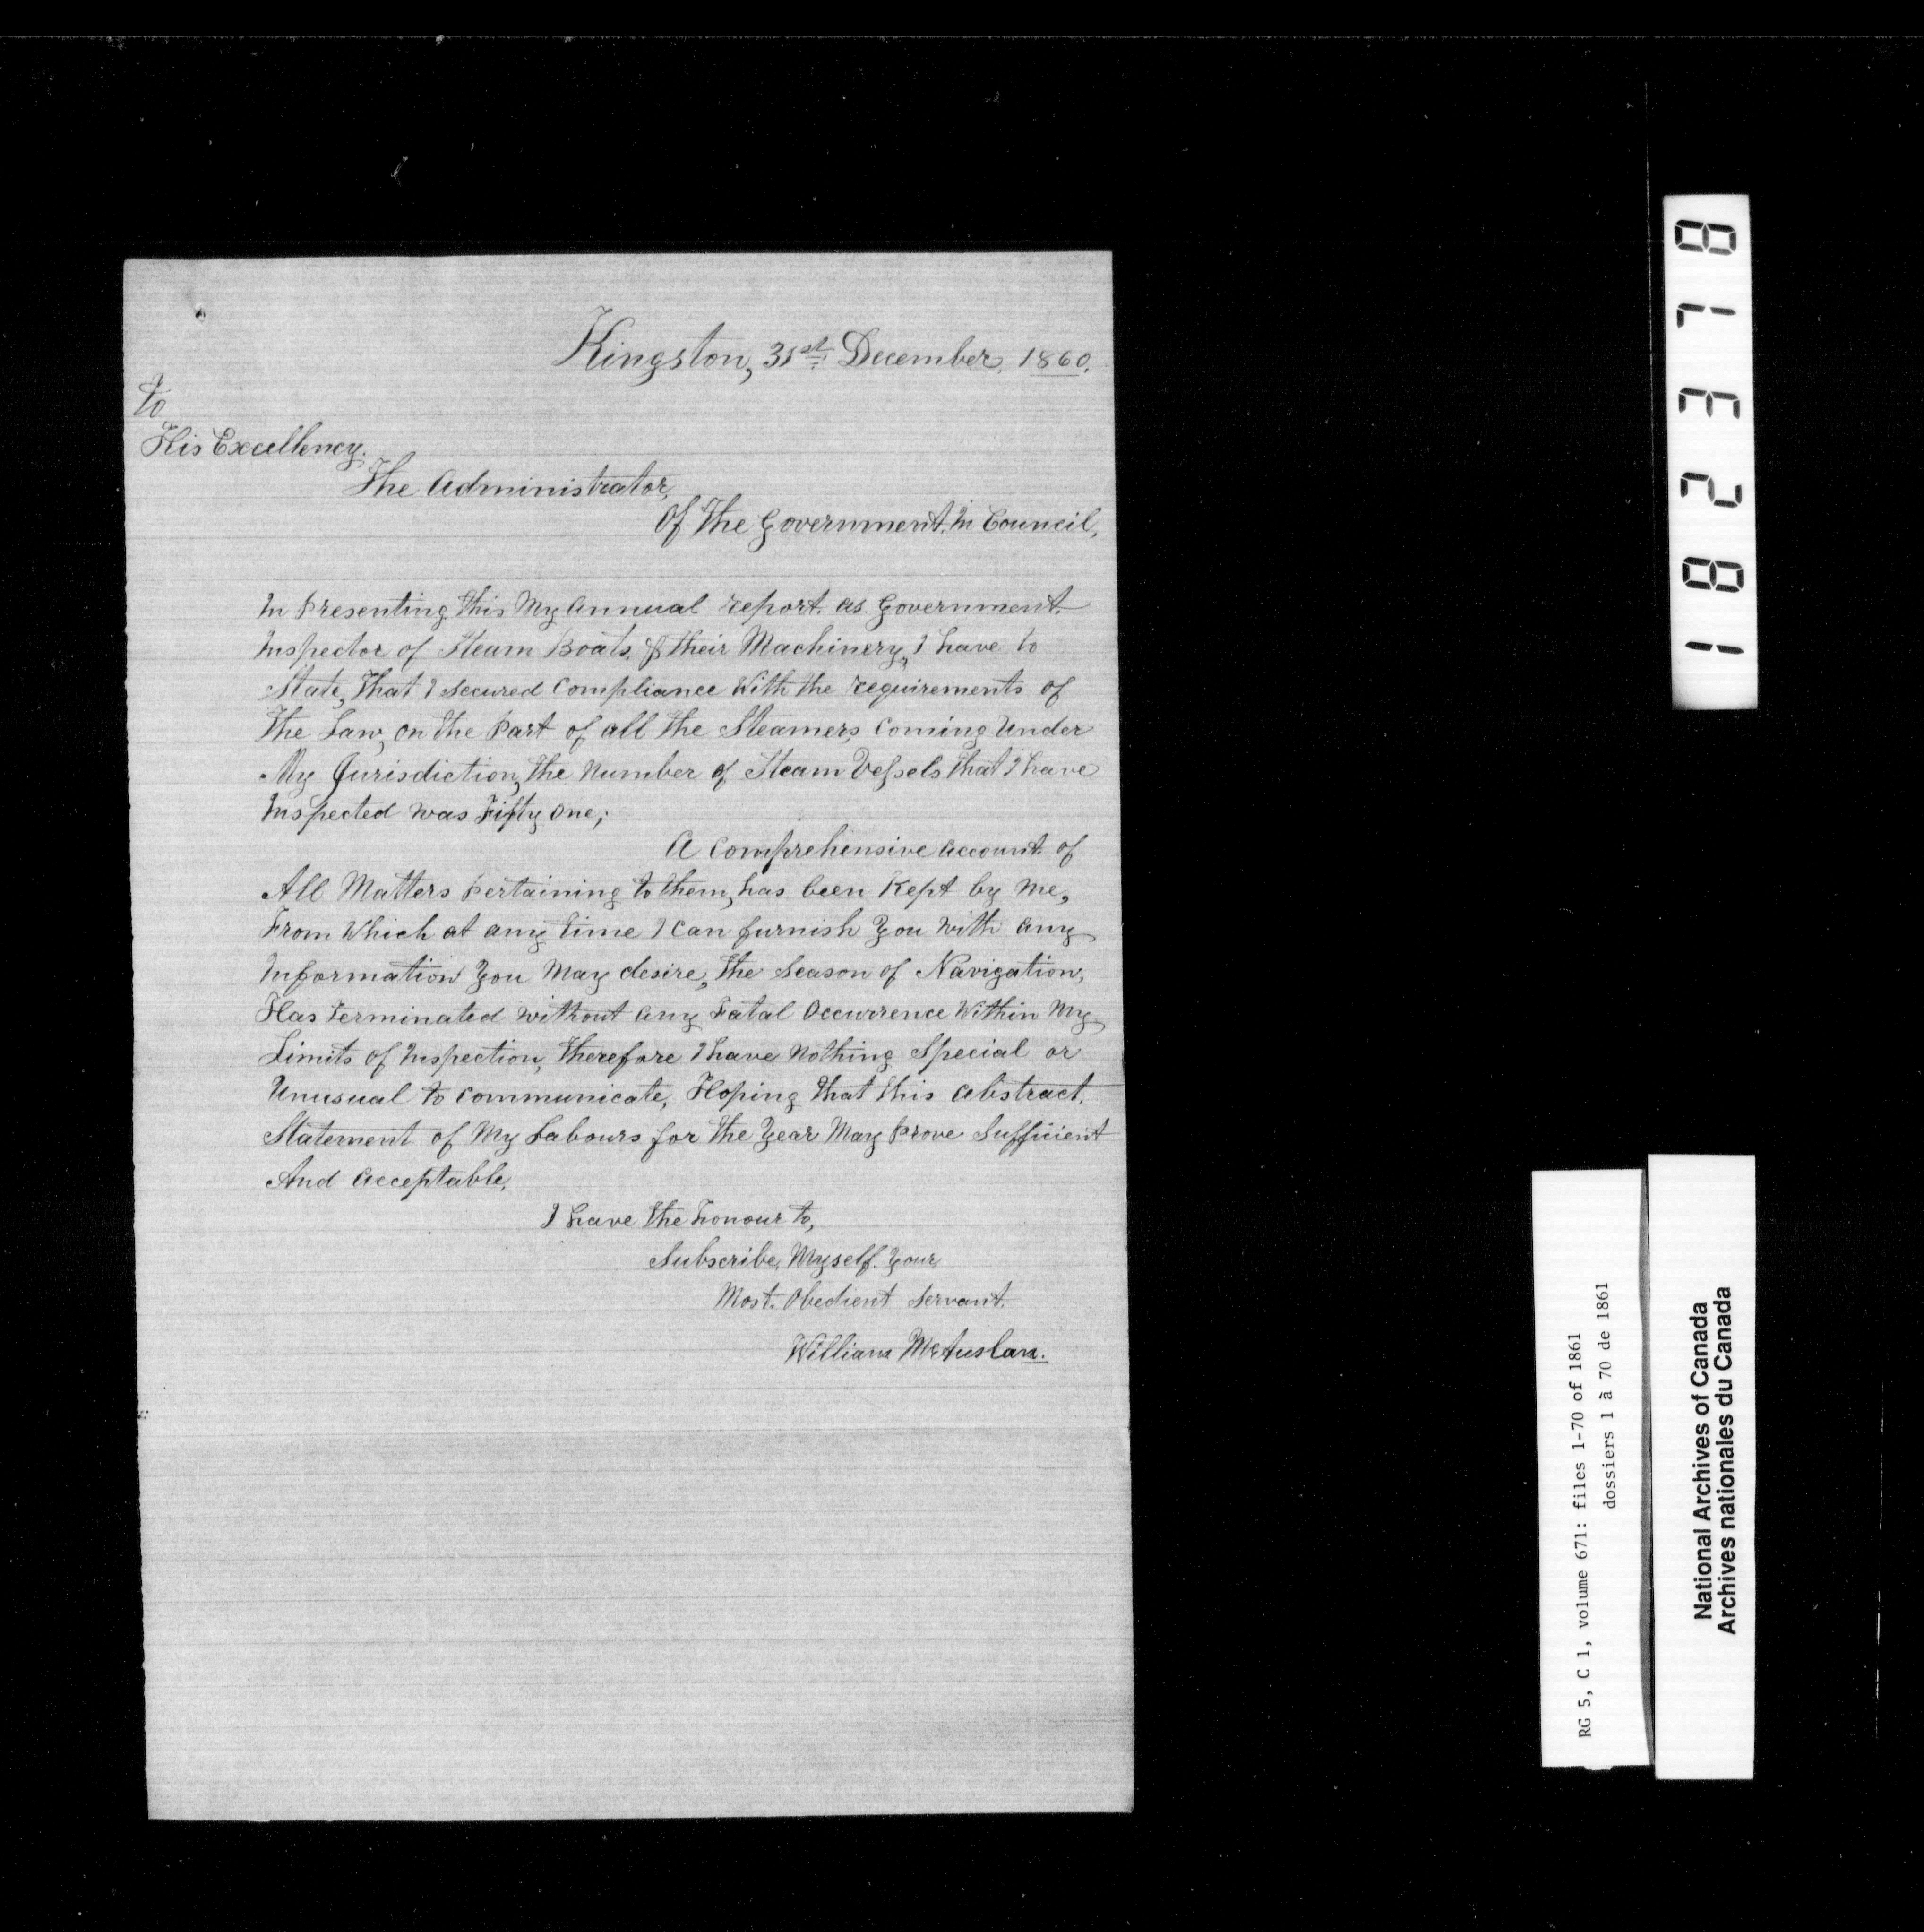 Kingston, 31st December, 1860.
To
His Excellency.
The Administrator,
Of The Government. In Council,
In Presenting This My Annual report. as Government.
Inspector of Steam Boats, & their Machinery, I have to
State, That I secured Compliance With the requirements of
The Law, on the Part of all The Steamers, Coming Under
My Jurisdiction, The Number of Steam Vessels That I have
Inspected was Fifty One;
A Comprehensive account of
All Matters Pertaining to them, has been Kept by Me,
From Which at any Time I Can furnish You With any
Information You May desire, The Season of Navigation,
Has Terminated without any Fatal Occurrence Within My
Limits of Inspection, Therefore I have Nothing Special or
Unusual to Communicate, Hoping That this abstract.
Statement of My Labours for The Year May Prove Sufficient
And Acceptable,
I have The honour to,
Subscribe, Myself. Your,
Most. Obedient Servant.
William McAuslan.
182378
RG 5, C 1, volume 671: files 1-70 of 1861
dossiers 1 à 70 de 1861
National Archives of Canada
Archives nationales du Canada